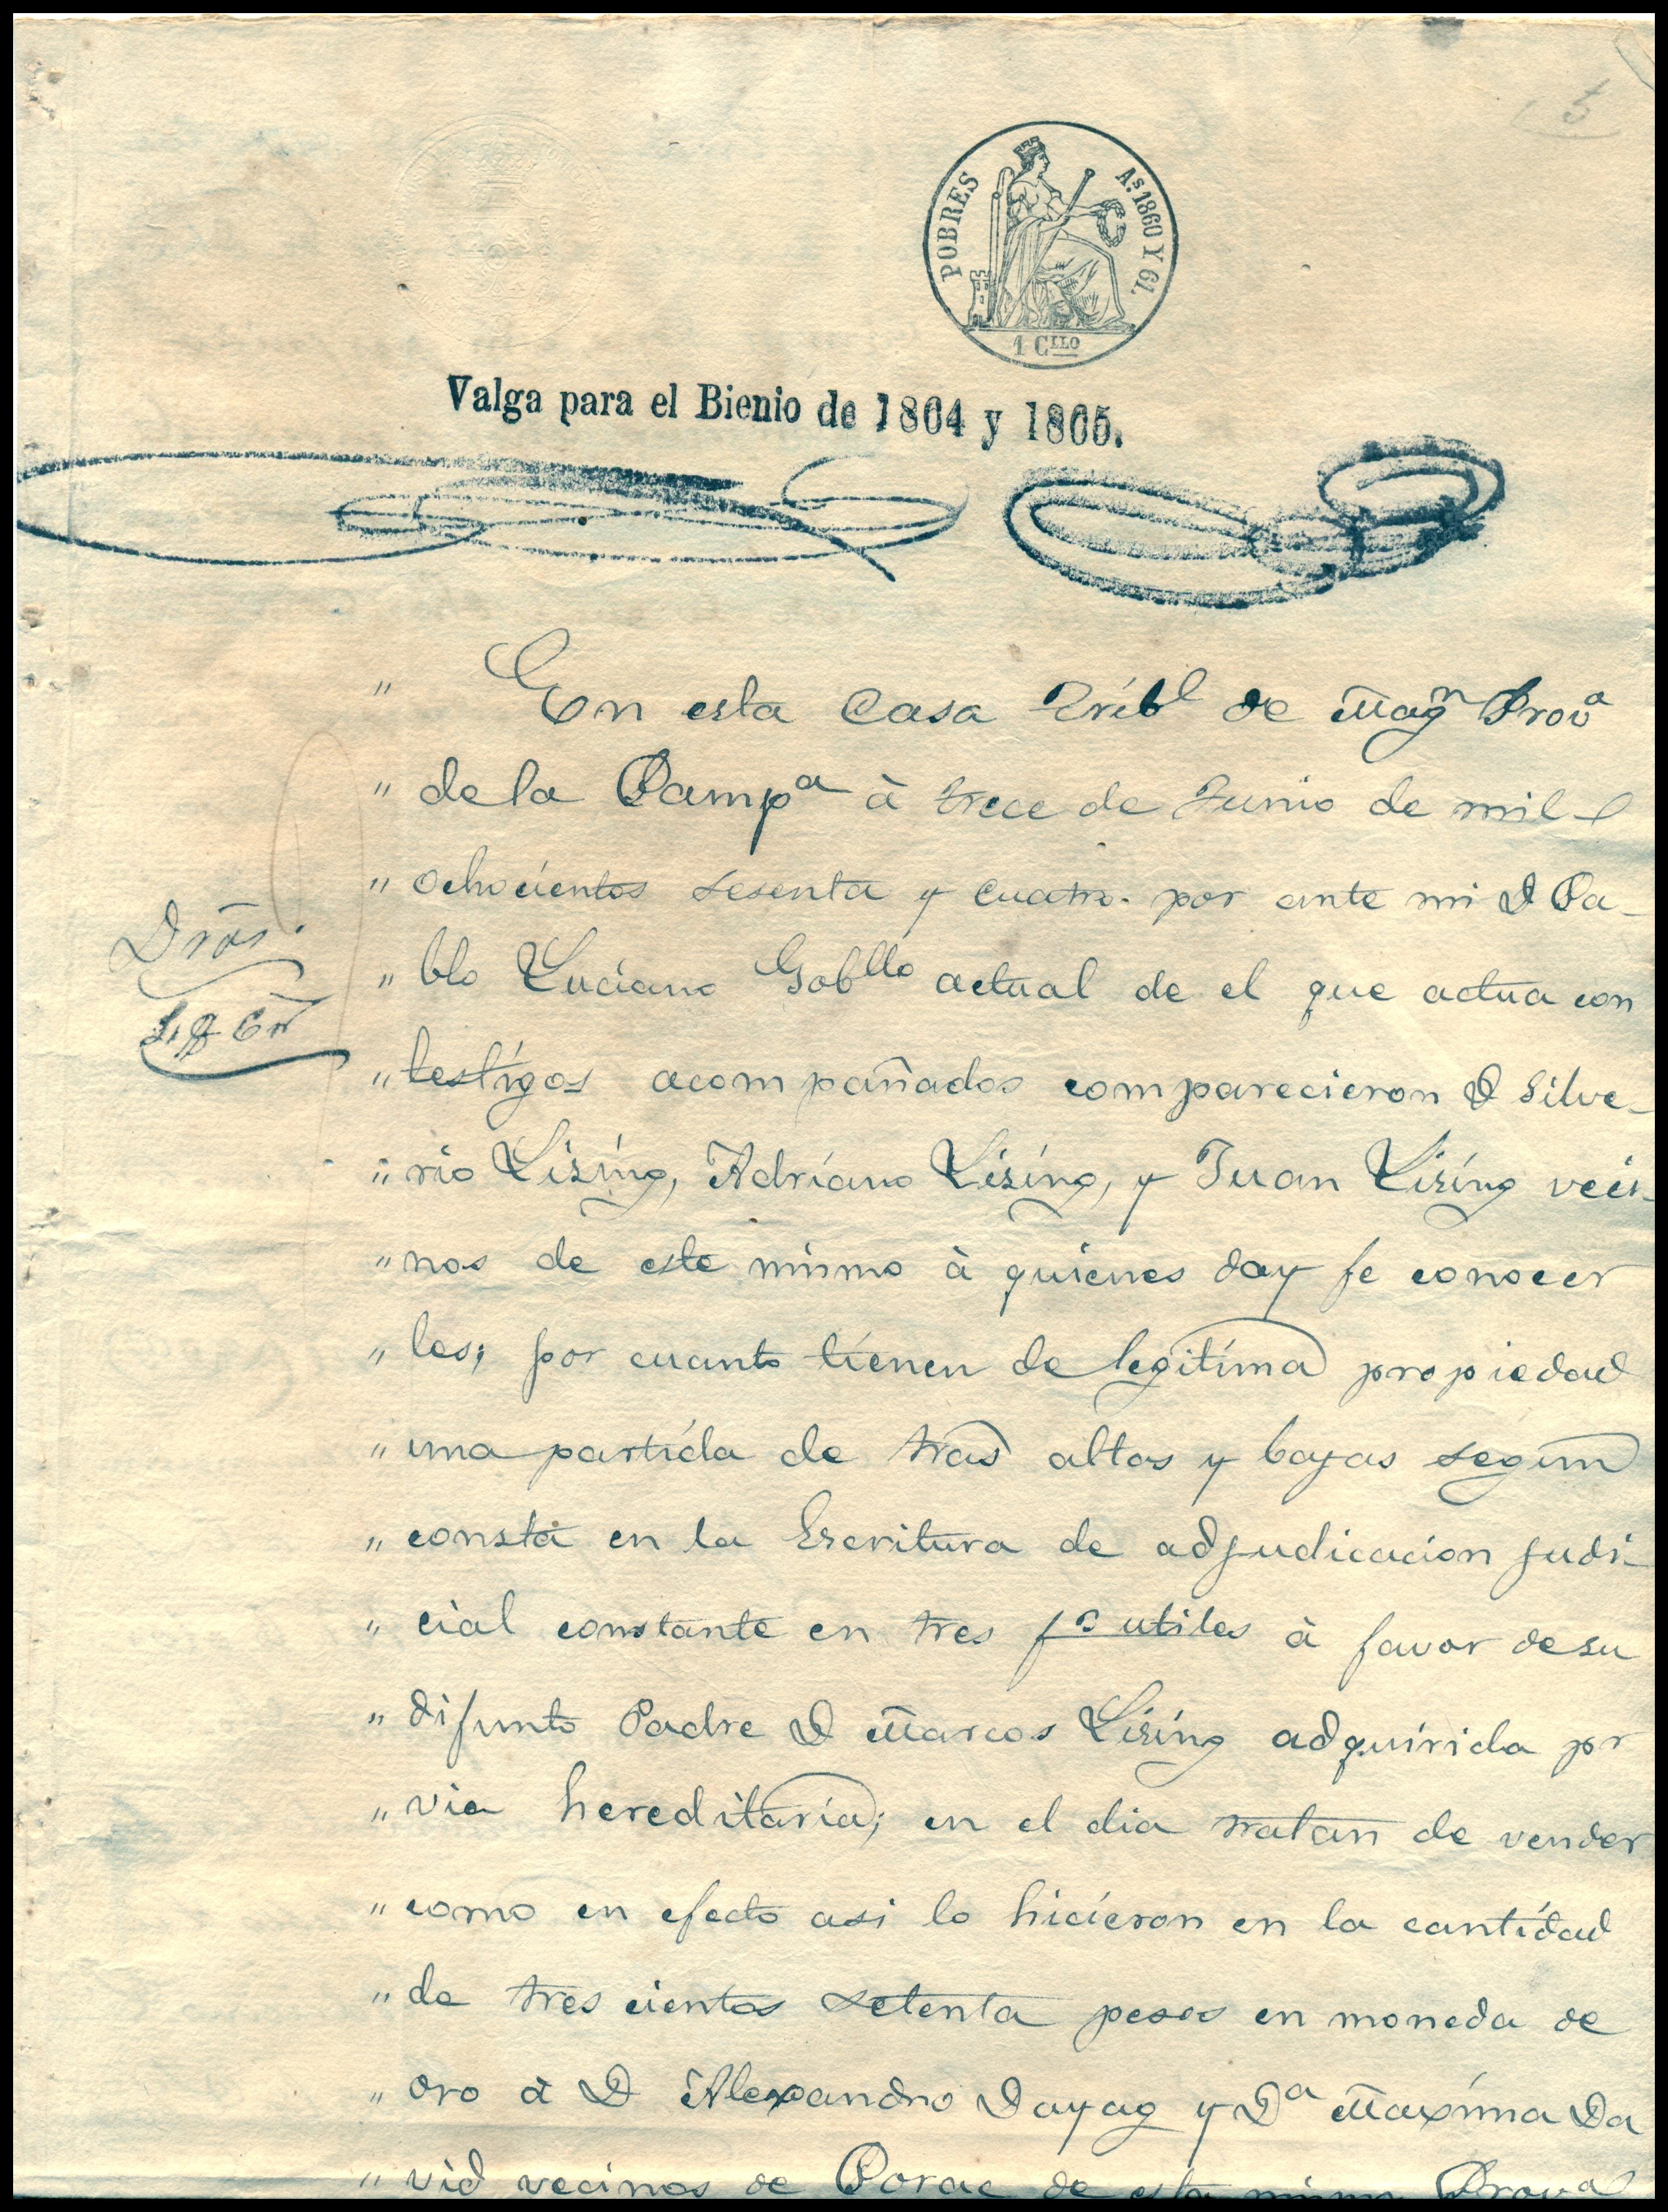 5
POBRES
As. 1860 Y 61.
1 Cllo
Valga para el Bienio de 1864 y 1865.
" En esta Casa Tribl de Magn Prova
" de la Pampa à trece de Junio de mil
" ochocientos sesenta y cuatro. por ante mi D Pa-
" blo Luciano Gobllo actual de el que actua con
" testigos acompañados comparecieron D Silve-
" rio Lising, Adriano Lising, y Juan Lising veci-
" nos de este mismo à quienes doy fe conocer
" les; por cuanto tienen de legitima propiedad
" una partida de trras altas y bajas segun
" consta en la Escritura de adjudicacion judi-
" cial constante en tres fs utiles à favor de su
" difunto Padre D Marcos Lising adquirida pr
" via hereditaria; en el dia tratan de vender
" como en efecto asi lo hicieron en la cantidad
" de tres cientos setenta pesos en moneda de
" oro à D Alexandro Dayag y Da Maxima Da
" vid vecinos de Porac de esta misma Prova
Dros.